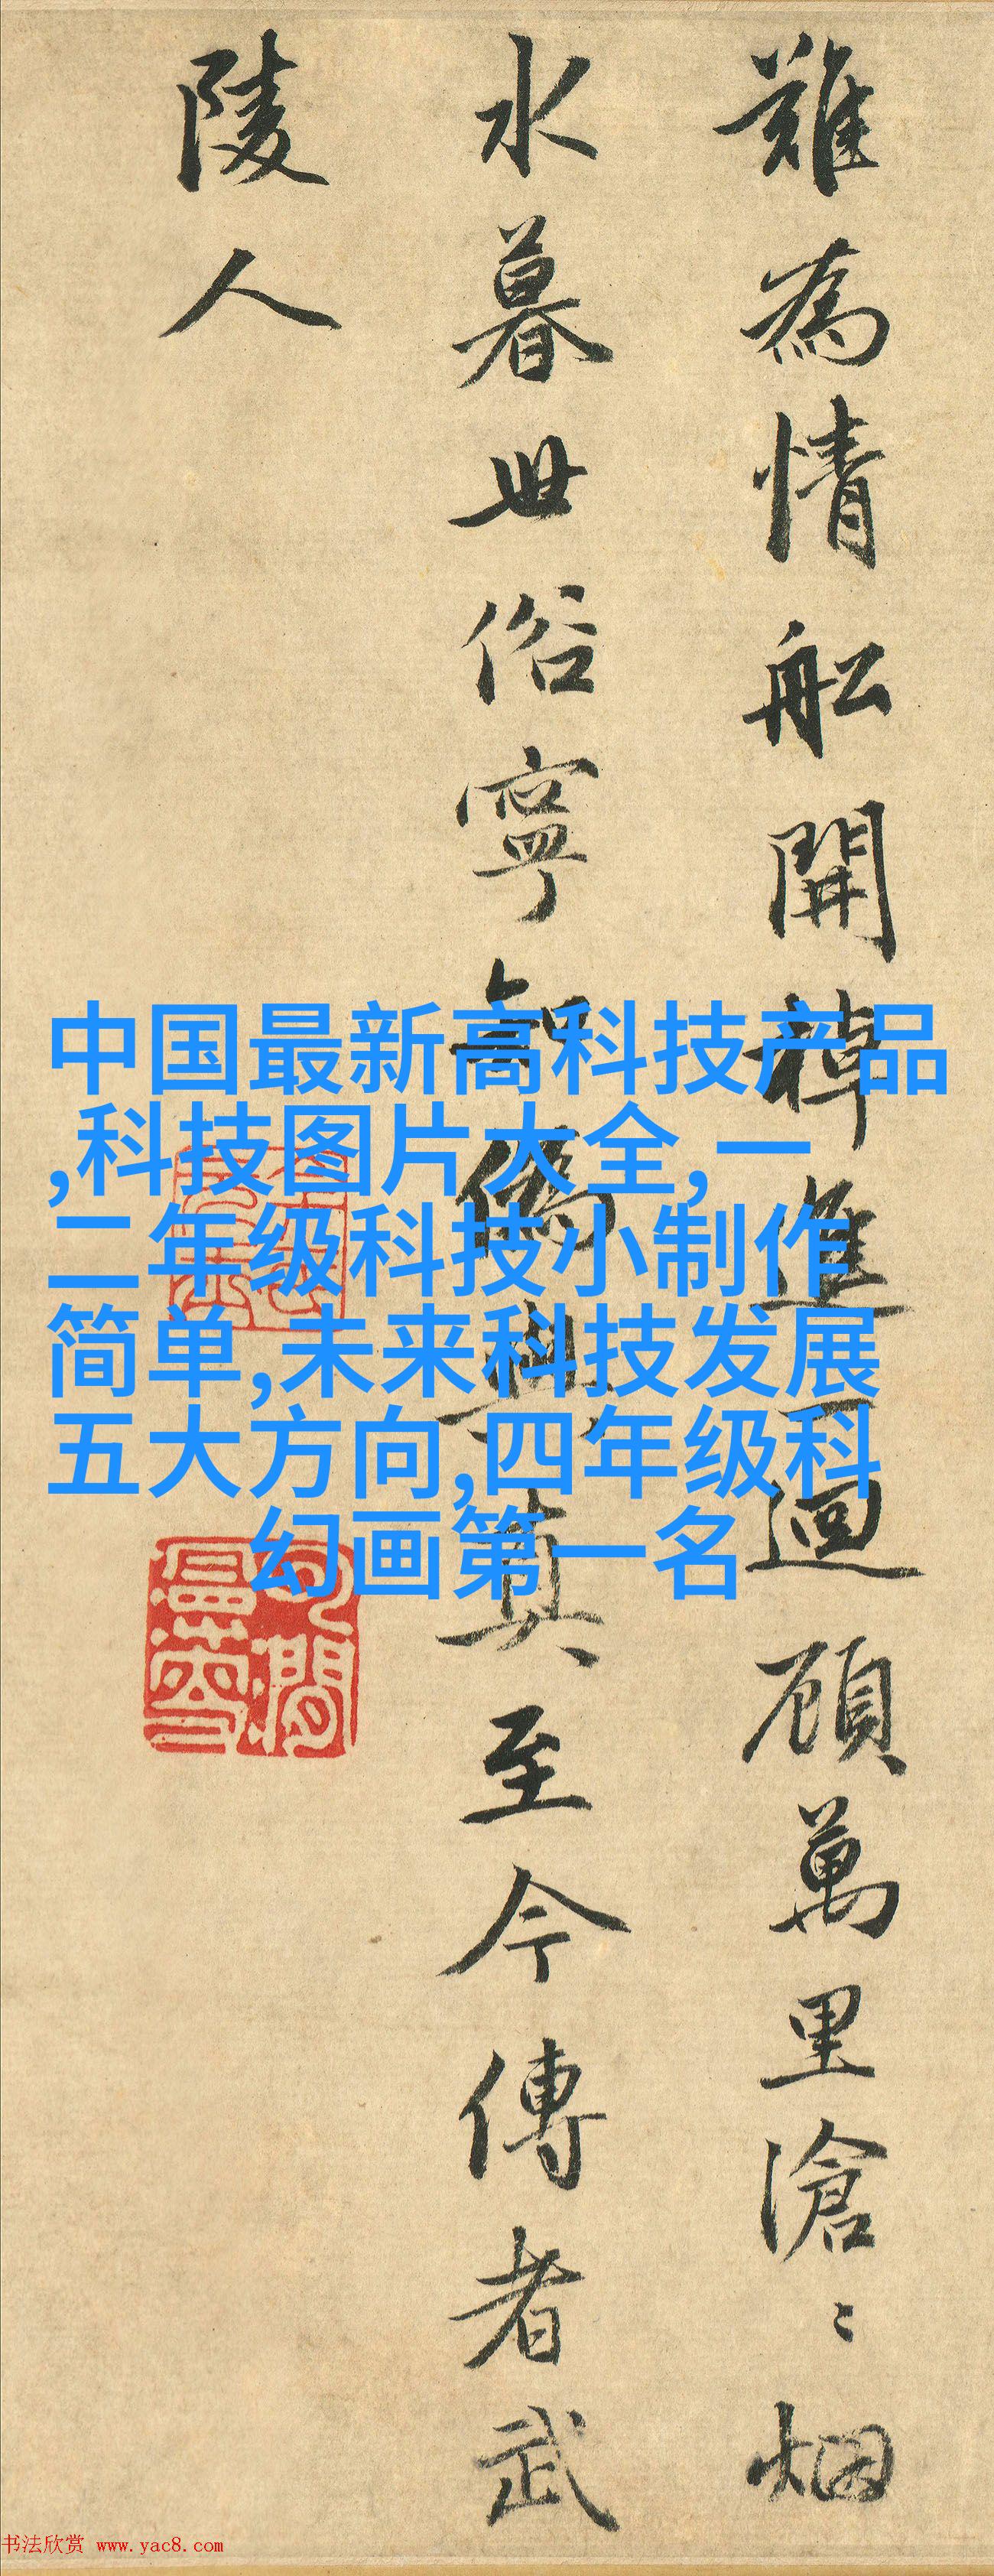 難為情舩開棹進一迴顧萬里滄〻烟
水暮世俗寧知偽與真至今傳者武
陵人
中国最新高科技产品
,科技图片大全,一
二年级科技小制作
简单,未来科技发展
五大方向,四年级科
幻画第一名
书法欣赏 www.yac8.com